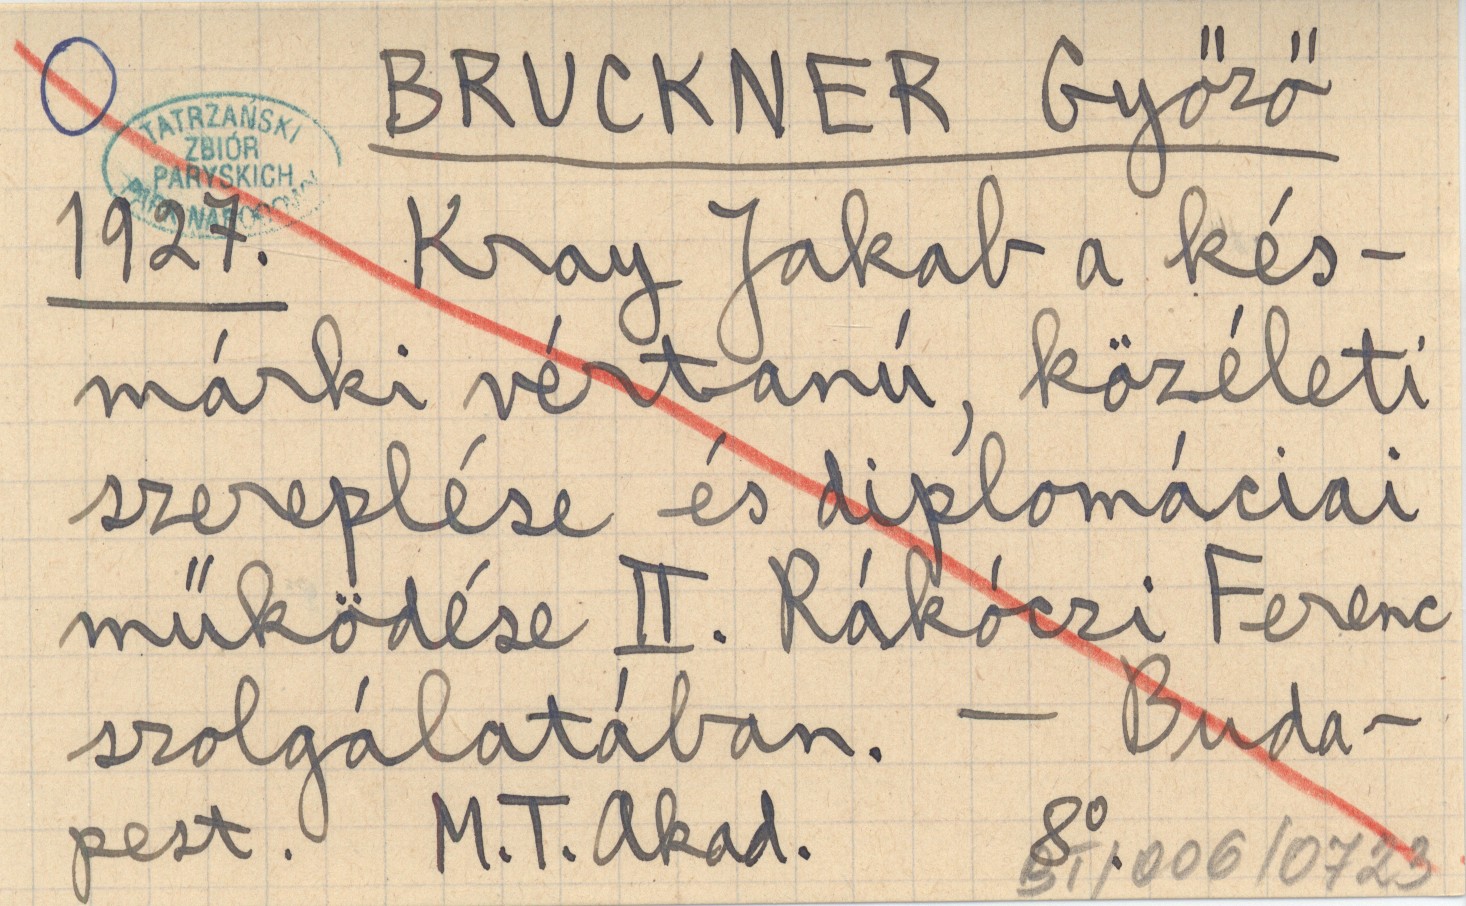 BRUCKNER Győző
TATRZAŃSKI
ZBIÓR
PARYSKICH
1927. Kray Jakab a kés-
márki vértanú, közéleti
szereplése és diplomáciai
működése II. Rákóczi Ferenc
szolgálatában. — Buda-
pest. M.T. Akad. 8°.
BT/006/0723